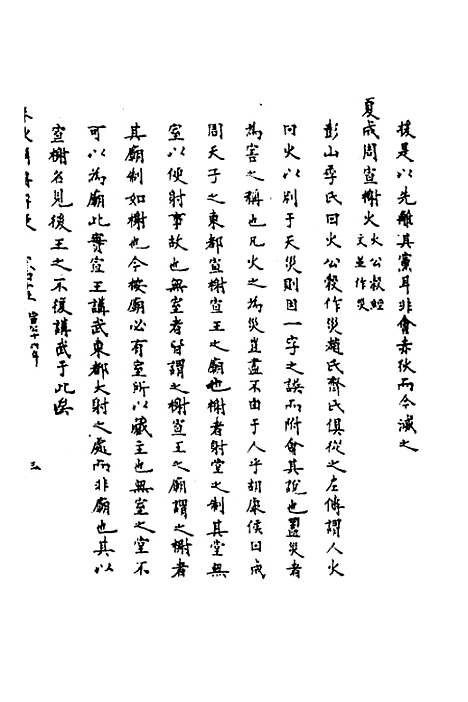 援是以先離其黨耳非會赤狄而今滅之
夏成周宣榭火火公穀經文並作災
彭山季氏曰火公穀作災趙氏齊氏俱從之左傳謂人火
曰火以別于天災則因一字之誤而附會其說也盖災者
為害之稱也凡火之為災豈盡不由于人乎胡康侯曰成
周天子之東都宣榭宣王之廟也榭者射堂之制其堂無
室以便射事故也無室者皆謂之榭宣王之廟謂之榭者
其廟制如榭也今按廟必有室所以藏主也無室之堂不
可以為廟此實宣王講武東都大射之處而非廟也其以
宣榭名見後王之不復講武于此矣